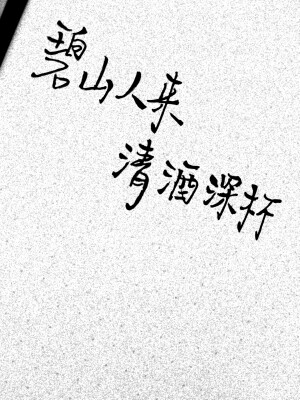 碧山人来
清酒深杯